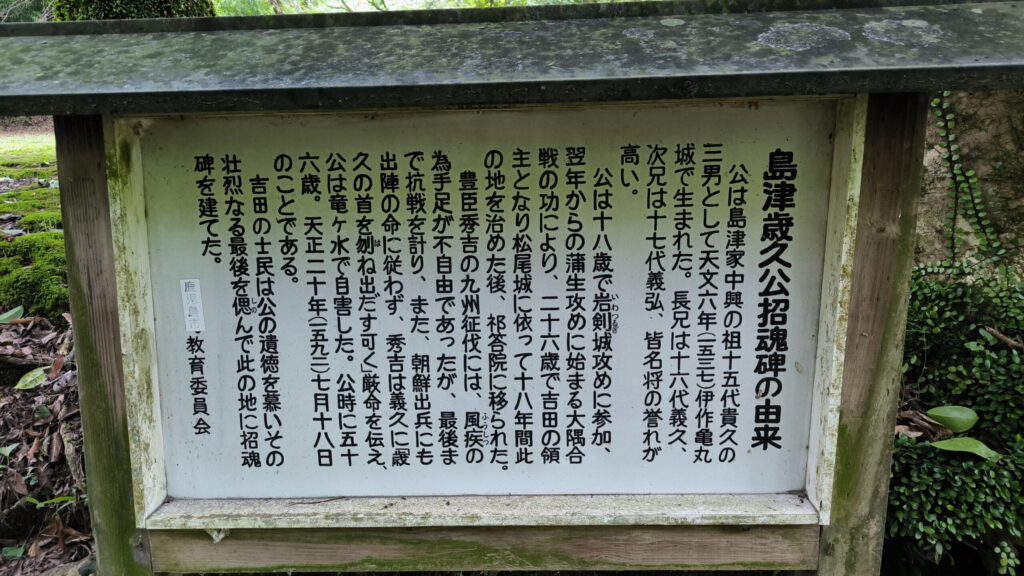 島津歳久公招魂碑の由来
公は島津家中興の祖十五代貴久の
三男として天文六年(一五三七)伊作亀丸
城で生まれた。長兄は十六代義久、
次兄は十七代義弘、皆名将の誉れが
高い。
公は十八歳で岩剣城攻めに参加、
翌年からの蒲生攻めに始まる大隅合
戦の功により、二十六歳で吉田の領
主となり松尾城に依って十八年間此
の地を治めた後、祁答院に移られた。
豊臣秀吉の九州征伐には、風疾の
為手足が不自由であったが、最後ま
で抗戦を計り、また、朝鮮出兵にも
出陣の命に従わず、秀吉は義久に「歳
久の首を刎ね出だす可く」厳命を伝え、
公は竜ヶ水で自害した。公時に五十
六歳。天正二十年(一五九二)七月十八日
のことである。
吉田の士民は公の遺徳を慕いその
壮烈なる最後を偲んで此の地に招魂
碑を建てた。
鹿児島市教育委員会